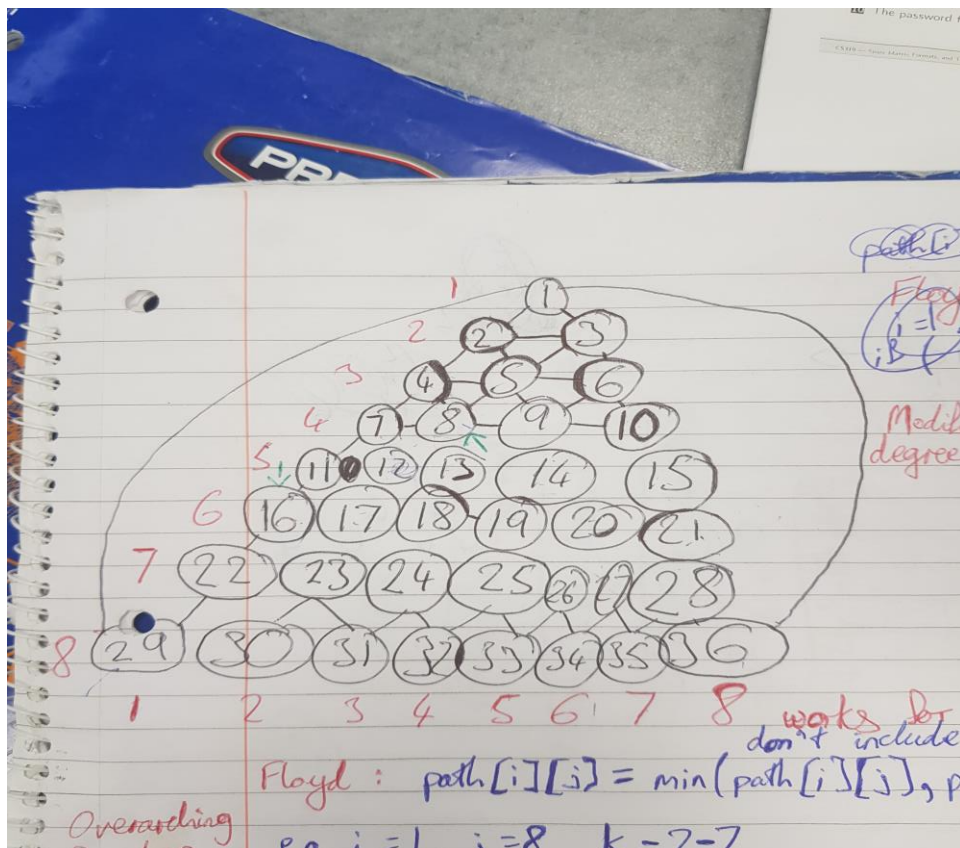 The password
path[i
1 1
2 2 3
3 4 5 6
4 7 8 9 10
5 11 12 13 14 15
6 16 17 18 19 20 21
7 22 23 24 25 26 27 28
8 29 30 31 32 33 34 35 36
1 2 3 4 5 6 7 8 works for
don't include
Floyd : path[i][j] = min(path[i][j], p
Overarching
i=1
degree